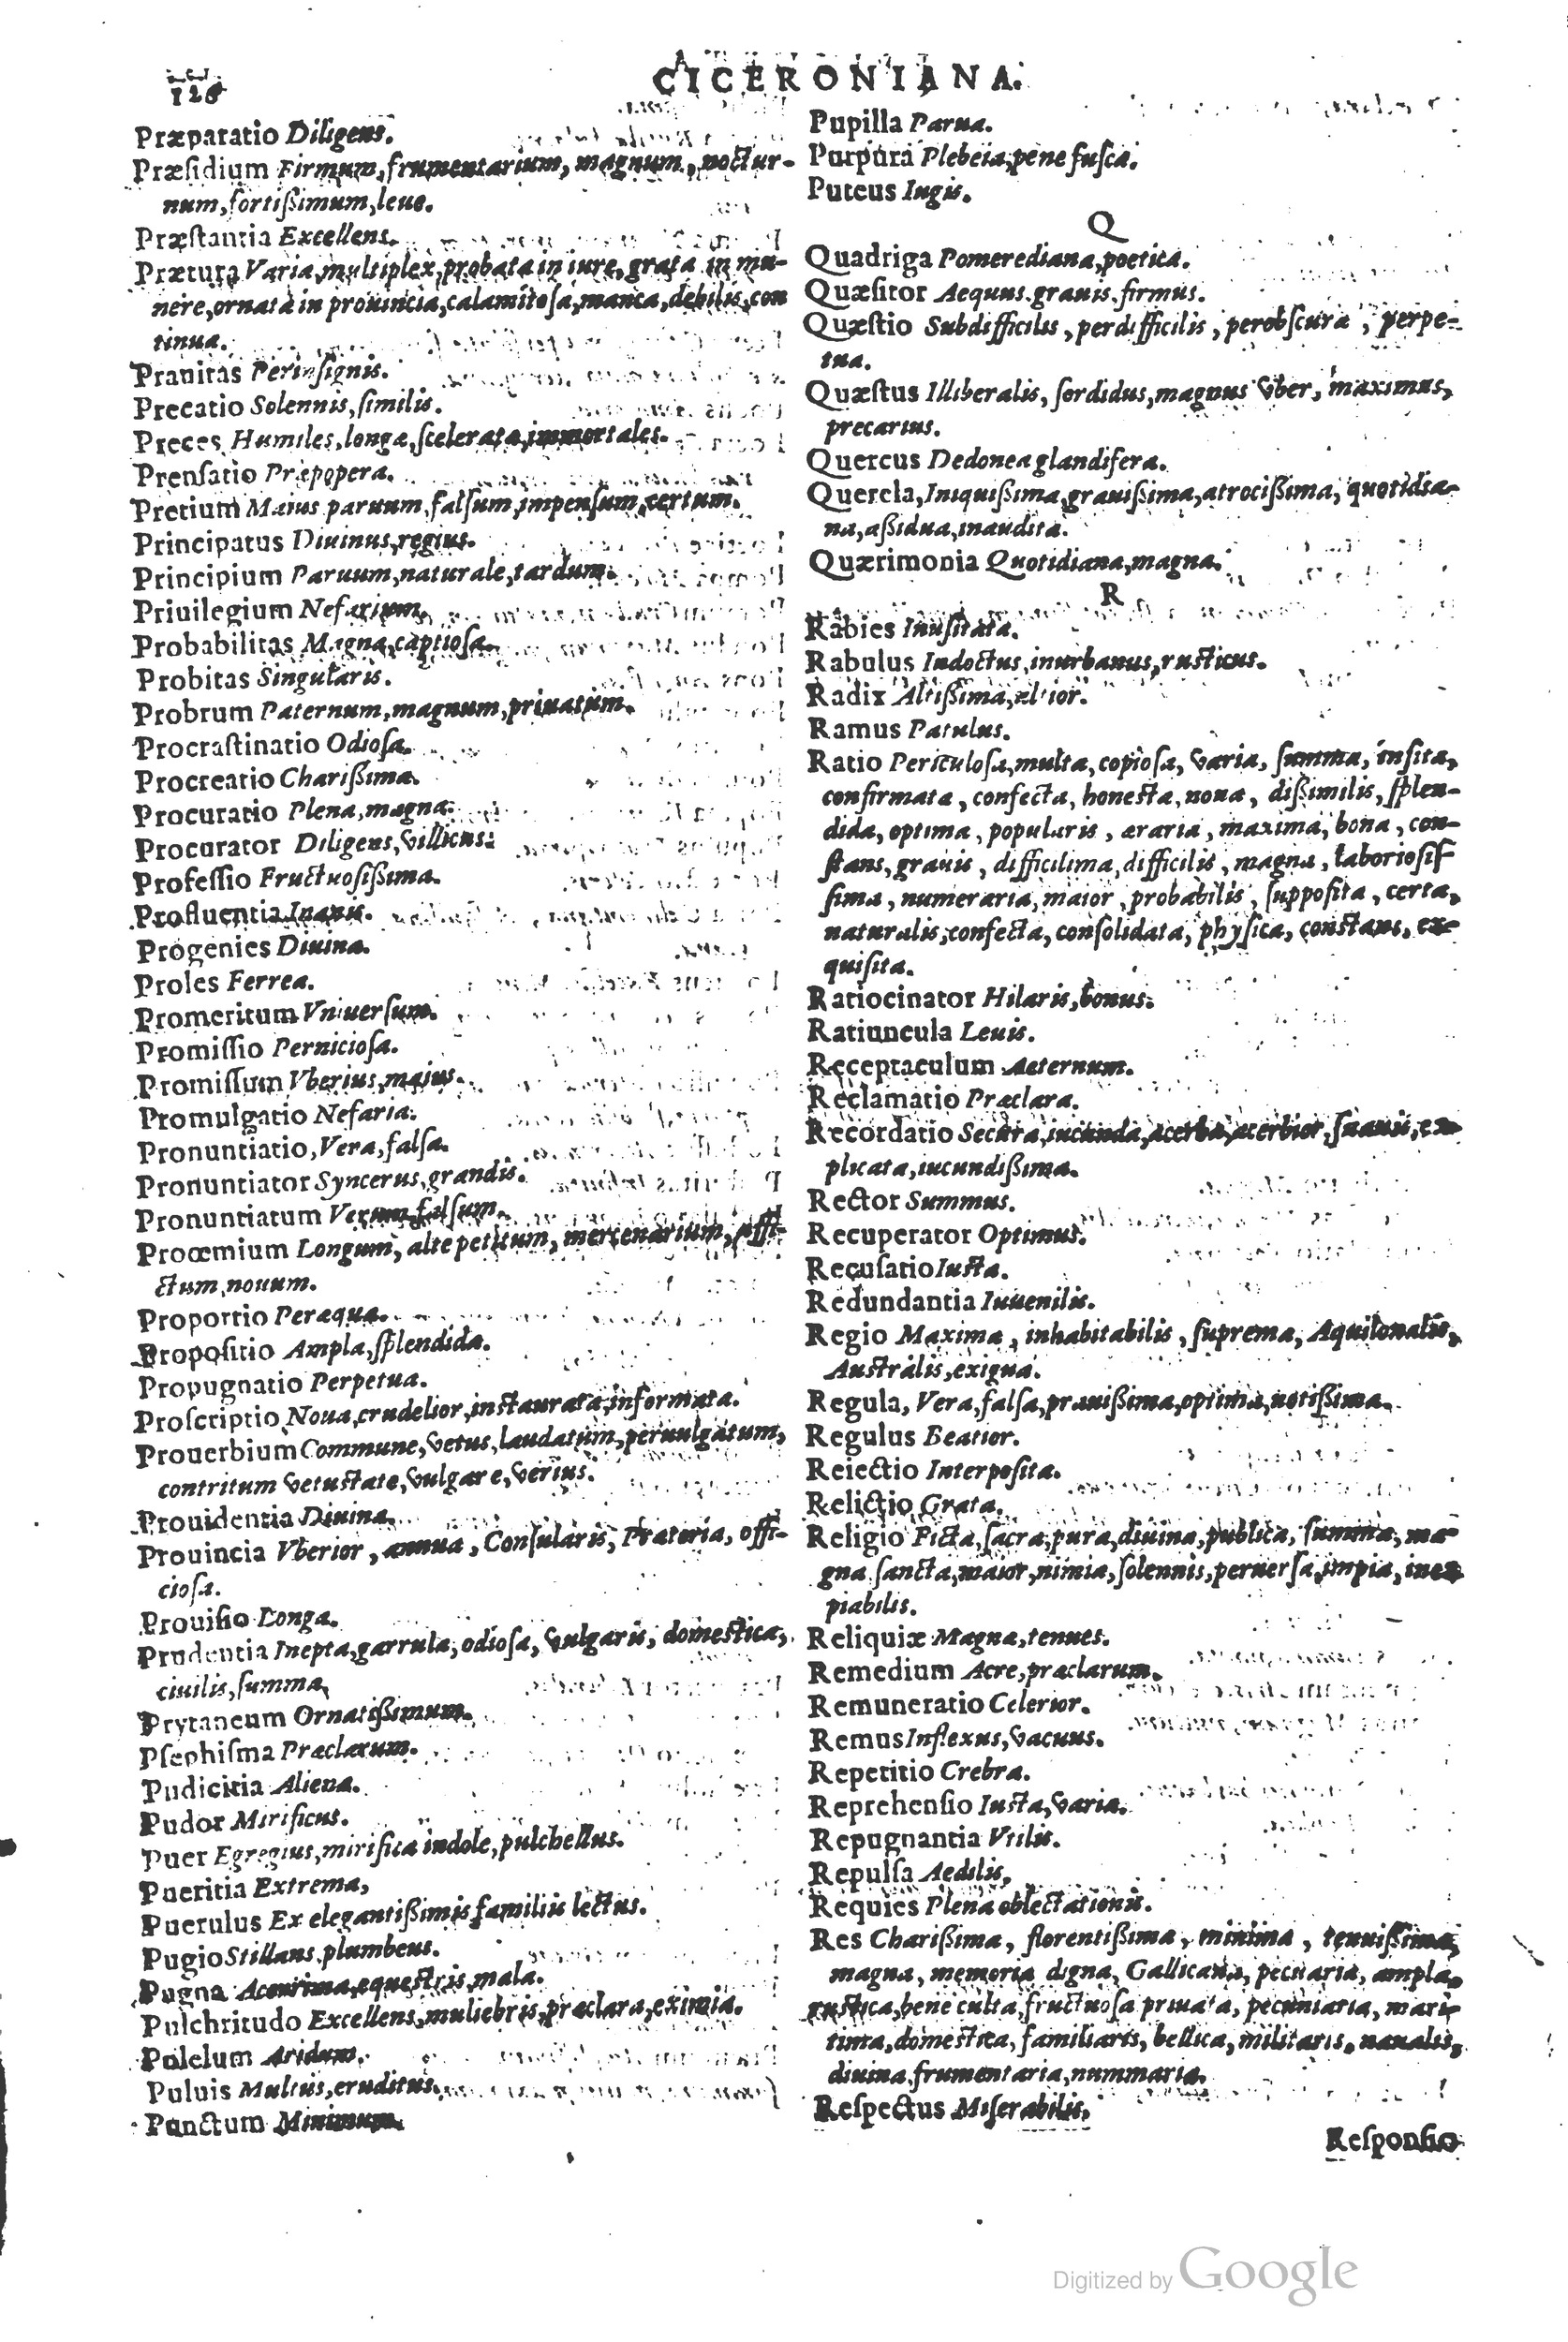 126
CICERONIANA.
Præparatio Diligens.
Præſidium Firmum, frumentarium, magnum, noctur-
num, fortißimum, leue.
Præſtantia Excellens.
Prætura Varia, multiplex, probata in iure, grata in mu-
nere, ornata in prouincia, calamitoſa, manca, debilis, con
tinua.
Prauitas Perinſignis.
Precatio Solennis, ſimilis.
Preces Humiles, longæ, ſceleratæ, immortales.
Prenſatio Præpopera.
Pretium Maius paruum, falſum, impenſum, certum.
Principatus Diuinus, regius.
Principium Paruum, naturale, tardum.
Priuilegium Nefarium.
Probabilitas Magna, captioſa.
Probitas Singularis.
Probrum Paternum, magnum, priuatum.
Procraſtinatio Odioſa.
Procreatio Charißima.
Procuratio Plena, magna.
Procurator Diligens, villicus.
Profeſſio Fructuoſißima.
Profluentia Inanis.
Progenies Diuina.
Proles Ferrea.
Promeritum Vniuerſum.
Promiſſio Pernicioſa.
Promiſſum Vberius, maius.
Promulgatio Nefaria.
Pronuntiatio, Vera, falſa.
Pronuntiator Syncerus, grandis.
Pronuntiatum Verum, falſum.
Proœmium Longum, alte petitum, mercenarium, effi-
ctum, nouum.
Proportio Peræqua.
Propoſitio Ampla, ſplendida.
Propugnatio Perpetua.
Proſcriptio Noua, crudelior, inſtaurata, informata.
Prouerbium Commune, vetus, laudatum, peruulgatum,
contritum vetuſtate, vulgare, verius.
Prouidentia Diuina.
Prouincia Vberior, annua, Conſularis, Prætoria, offi-
cioſa.
Prouiſio Longa.
Prudentia Inepta, garrula, odioſa, vulgaris, domeſtica,
ciuilis, ſumma,
Prytaneum Ornatißimum.
Pſephiſma Præclarum.
Pudicitia Aliena.
Pudor Mirificus.
Puer Egregius, mirifica indole, pulchellus.
Pueritia Extrema,
Puerulus Ex elegantißimis familiis lectus.
Pugio Stillans, plumbeus.
Pugna Acerrima, equeſtris, mala.
Pulchritudo Excellens, muliebris, præclara, eximia.
Pulelum Aridum.
Puluis Multus, eruditus.
Punctum Minimum.
Pupilla Parua.
Purpura Plebeia, pene fuſca.
Puteus Iugis.
Q
Quadriga Pomerediana, poetica.
Quæſitor Aequus. grauis. firmus.
Quæſtio Subdifficilis, perdifficilis, perobſcura, perpe-
tua.
Quæſtus Illiberalis, ſordidus, magnus vber, maximus,
precarius.
Quercus Dedonea glandifera.
Querela, Iniquißima, grauißima, atrocißima, quotidia-
na, aßidua, inaudita.
Quærimonia Quotidiana, magna.
R
Rabies Inuſitata.
Rabulus Indoctus, inurbanus, ruſticus.
Radix Altißima, altior.
Ramus Patulus.
Ratio Periculoſa, multa, copioſa, varia, ſumma, inſita,
confirmata, confecta, honeſta, noua, dißimilis, ſplen-
dida, optima, popularis, æraria, maxima, bona, con-
ſtans, grauis, difficilima, difficilis, magna, laborioſiſ
ſima, numeraria, maior, probabilis, ſuppoſita, certa,
naturalis, confecta, conſolidata, phyſica, conſtans, ex-
quiſita.
Ratiocinator Hilaris, bonus.
Ratiuncula Leuis.
Receptaculum Aeternum.
Reclamatio Præclara.
Recordatio Secura, iucunda, acerba, acerbior, ſuauis, ex-
plicata, iucundißima.
Rector Summus.
Recuperator Optimus.
Recuſatio Iuſta.
Redundantia Iuuenilis.
Regio Maxima, inhabitabilis, ſuprema, Aquilonalis,
Auſtralis, exigua.
Regula, Vera, falſa, prauißima, optima, notißima.
Regulus Beatior.
Reiectio Interpoſita.
Relictio Grata.
Religio Ficta, ſacra, pura, diuina, publica, ſumma, ma-
gna ſancta, maior, nimia, ſolennis, peruerſa, impia, inex
piabilis.
Reliquiæ Magnæ, tenues.
Remedium Acre, præclarum.
Remuneratio Celerior.
Remus Inflexus, vacuus.
Repetitio Crebra.
Reprehenſio Iuſta, varia.
Repugnantia Vtilis.
Repulſa Aedilis,
Requies Plena oblectationis.
Res Charißima, florentißima, minima, tenuißima,
magna, memoria digna, Gallicana, pecuaria, ampla,
ruſtica, bene culta, fructuoſa priuata, pecuniaria, mari-
tima, domeſtica, familiaris, bellica, militaris, naualis,
diuina, frumentaria, nummaria.
Reſpectus Miſerabilis,
Reſponſio
Digitized by Google